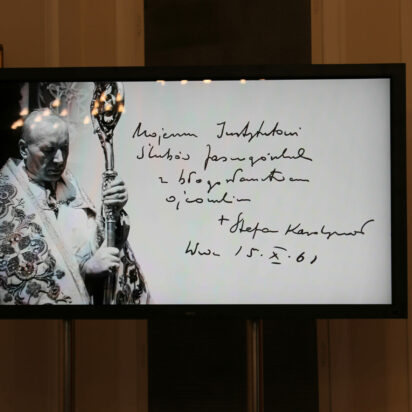 Mojemu Instytutowi
Ślubów Jasnogórskich
z błogosławieństwem
ojcowskim
+ Stefan Kardynał
15.X.61